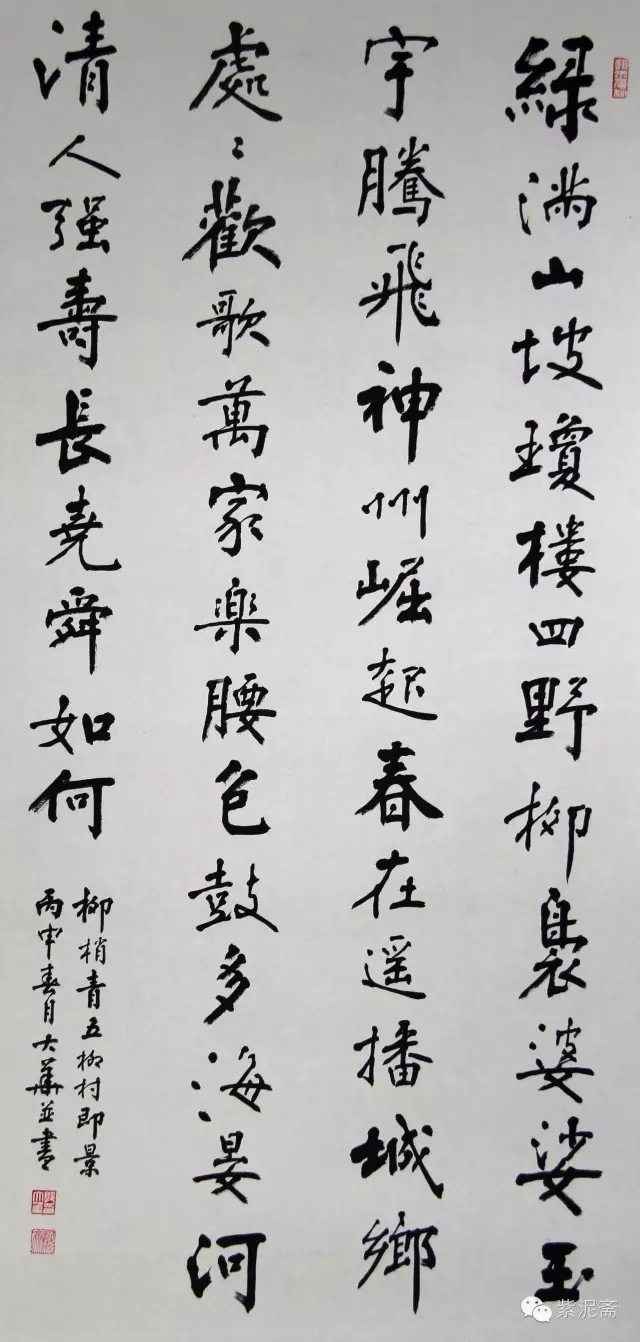 綠满山坡瓊楼四野柳裊婆娑玉
宇騰飛神州崛起春在遥播城鄉
處〻歡歌萬家樂腰包鼓多海晏河
清人强壽長堯舜如何
柳梢青五柳村即景
丙申春月大華並書
紫泥斋